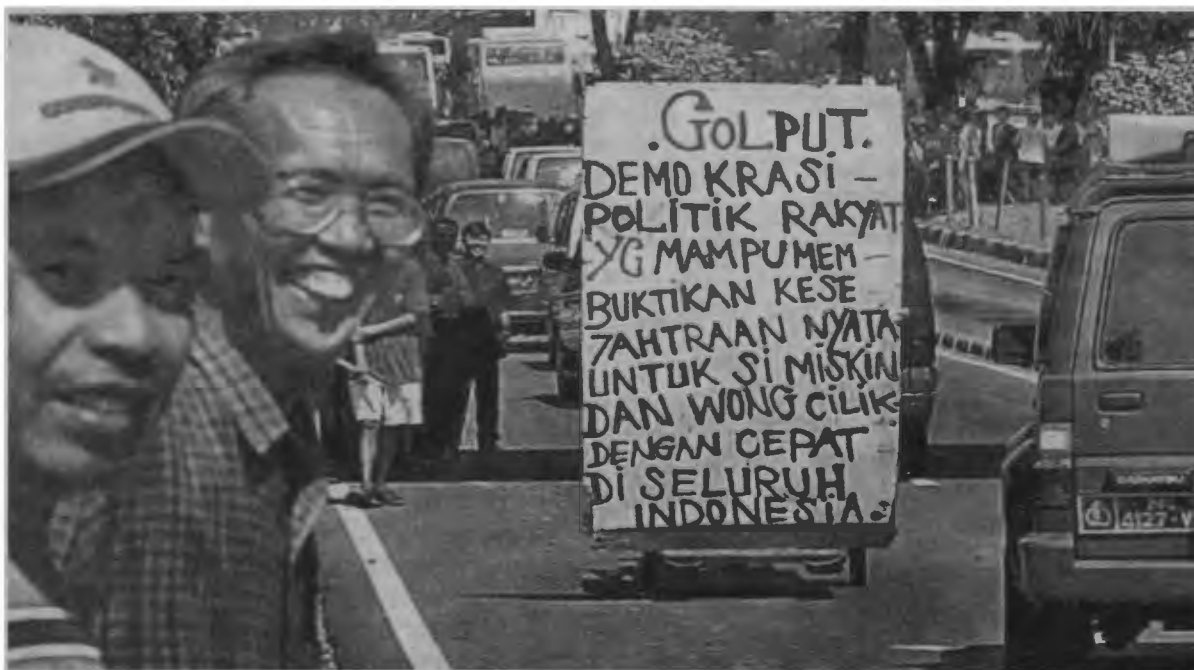 .GOLPUT.
DEMOKRASI -
POLITIK RAKYAT
YG MAMPU MEM -
BUKTIKAN KESE -
7AHTRAAN NYATA
UNTUK SI MISKIN
DAN WONG CILIK
DENGAN CEPAT
DI SELURUH
INDONESIA.